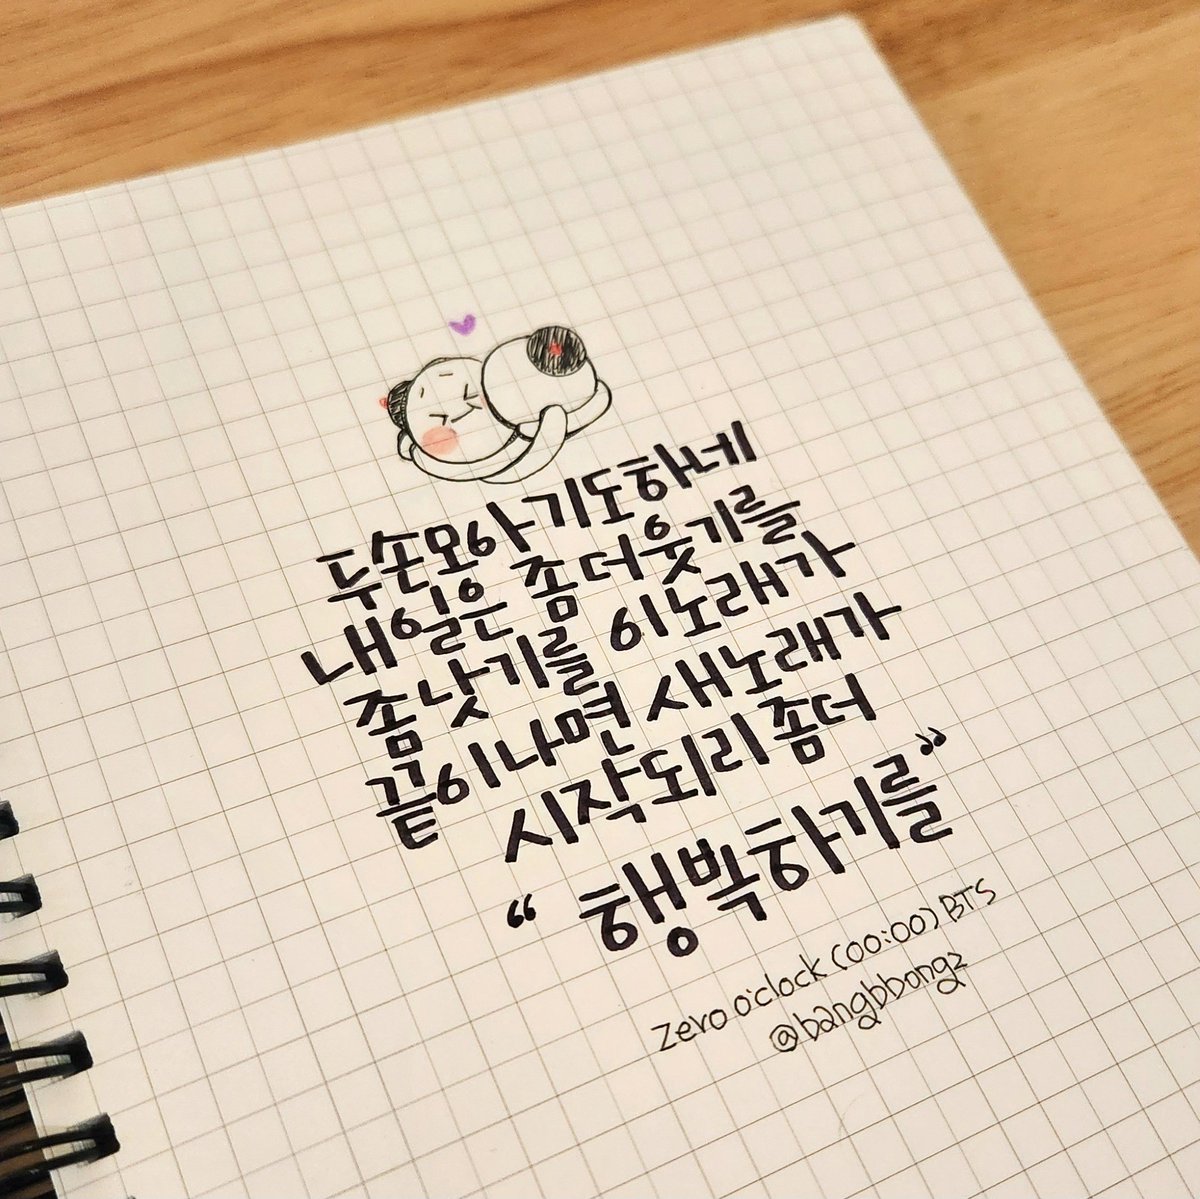 두손모아 기도하네
내일은 좀더웃기를
좀낫기를 이노래가
끝이나면 새노래가
시작되리 좀더
“ 행복하기를”
Zero o'clock (00:00) BTS
@bangbbangz